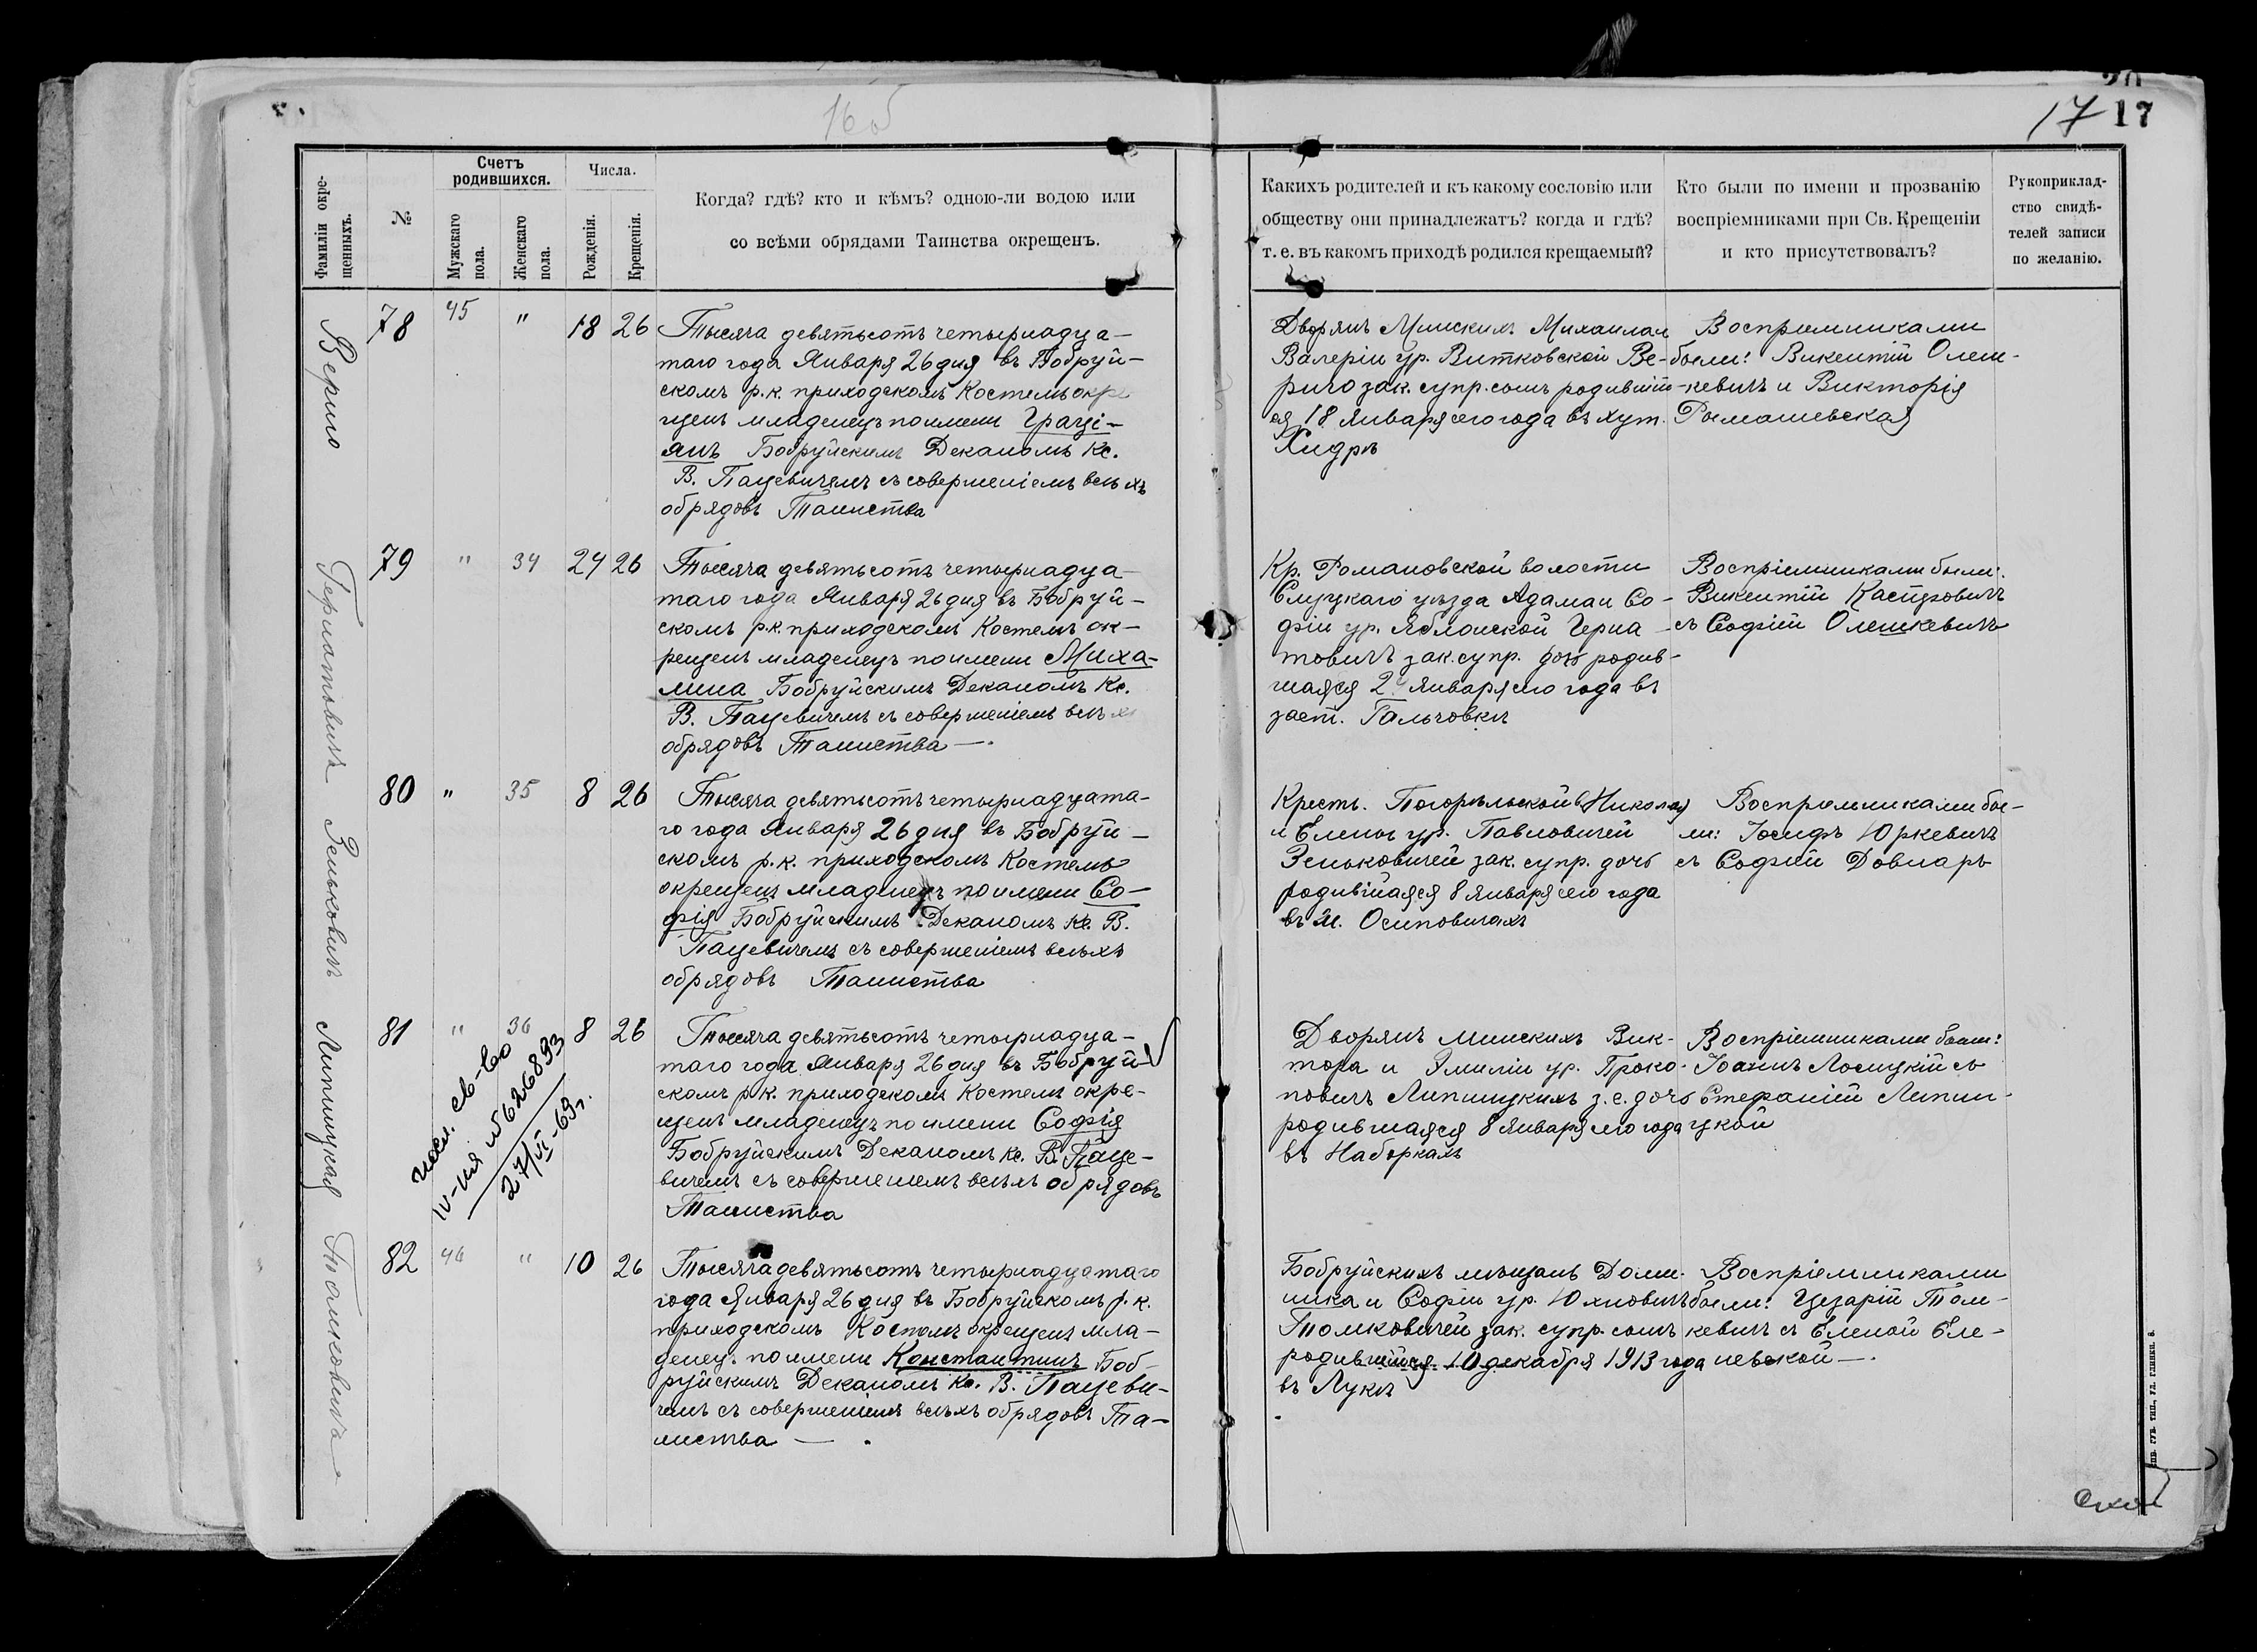 16об
17 17
Фамиліи окре-
щенныхъ.
№
Счетъ
родившихся.
Мужскаго
пола.
Женскаго
пола.
Числа.
Рожденія.
Крещенія.
Когда? гдѣ? кто и кѣмъ? одною-ли водою или
со всѣми обрядами Таинства окрещенъ.
Какихъ родителей и къ какому сословію или
обществу они принадлежатъ? когда и гдѣ?
т. е. въ какомъ приходѣ родился крещаемый?
Кто были по имени и прозванію
воспріемниками при Св. Крещеніи
и кто присутствовалъ?
Рукоприклад-
ство свидѣ-
телей записи
по желанію.
78 45 " 18 26
Тысяча девятьсотъ четырнадца-
таго года Января 26 дня въ Бобруй-
скомъ р.к. приходскомъ Костелѣ окре
щенъ младенецъ по имени Граці-
янъ Бобруйскимъ Деканомъ Кс.
В. Пацевичемъ съ совершеніемъ всѣхъ
обрядовъ Таинства
Дворянъ Минскихъ Михаила и
Валеріи ур. Витковской Ве-
риго зак. супр. сынъ родивший
ся 18 Января сего года въ хут.
Хидрѣ
Воспріемниками
были: Викентій Олеш-
кевичъ и Викторія
Ромашевская
Герматовичъ
79 " 34 24 26
Тысяча девятьсотъ четырнадца-
таго года Января 26 дня въ Бобруй-
скомъ р.к. приходскомъ Костелѣ ок-
рещенъ младенецъ по имени Миха-
лина Бобруйскимъ Деканомъ Кс.
В. Пацевичемъ съ совершеніемъ всѣхъ
обрядовъ Таинства —.
Кр. Романовской волости
Слуцкаго уѣзда Адама и Со-
фіи ур. Яблонской Герма-
товичъ зак. супр. дочь родив-
шаяся 24 Января сего года въ
заст. Гальчовкѣ
Воспріемниками были:
Викентій Каспровичъ
съ Софіей Олешкевичъ
Зеньковичъ
80 " 35 8 26
Тысяча девятьсотъ четырнадцата-
го года Января 26 дня въ Бобруй-
скомъ р.к. приходскомъ Костелѣ
окрещенъ младенецъ по имени Со-
фія Бобруйскимъ Деканомъ Кс. В.
Пацевичемъ съ совершеніемъ всѣхъ
обрядовъ Таинства
Кресть. Погорѣльской в. Николая
и Елены ур. Павловичей
Зеньковичей зак. супр. дочь
родившаяся 8 Января сего года
въ м. Осиповичахъ
Воспріемниками бы-
ли: Іосифъ Юркевичъ
съ Софіей Довнаръ
Липницкая
81 " 36 8 26
IV-ИЯ №626893
27/VI-69г.
Тысяча девятьсотъ четырнадца-
таго года Января 26 дня въ Бобруй-
скомъ р.к. приходскомъ Костелѣ окре-
щенъ младенецъ по имени Софія
Бобруйскимъ Деканомъ Кс. В. Паце-
вичемъ съ совершеніемъ всѣхъ обрядовъ
Таинства
Дворянъ Минскихъ Вик-
тора и Эмиліи ур. Проко-
повичъ Липницкихъ з. с. дочь
родившаяся 8 Января сего года
въ Наборкахъ
Воспріемниками были:
Іоаннъ Лосицкій съ
Стефаніей Липни-
цкой
Томковичъ
82 46 " 10 26
Тысяча девятьсотъ четырнадцатаго
года Января 26 дня въ Бобруйскомъ р.к.
приходскомъ Костелѣ окрещенъ мла-
денец. по имени Константинъ Боб-
руйскимъ Деканомъ Кс. В. Пацеви-
чемъ съ совершеніемъ всѣхъ обрядовъ Та-
инства — .
Бобруйскихъ мѣщанъ Доми-
ника и Софіи ур. Юхновичъ
Томковичей зак. супр. сынъ
родившійся 10 декабря 1913 года
въ Лукѣ
Воспріемниками
были: Цезарій Том-
кевичъ съ Еленой Еле-
невской —.